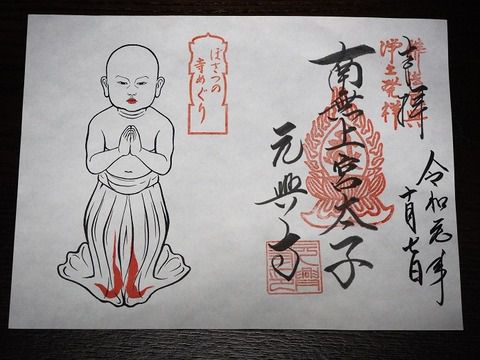 奉拝
浄土発祥
令和元年
十月七日
南無上宮太子
元興寺
ぼさつの
寺めぐり